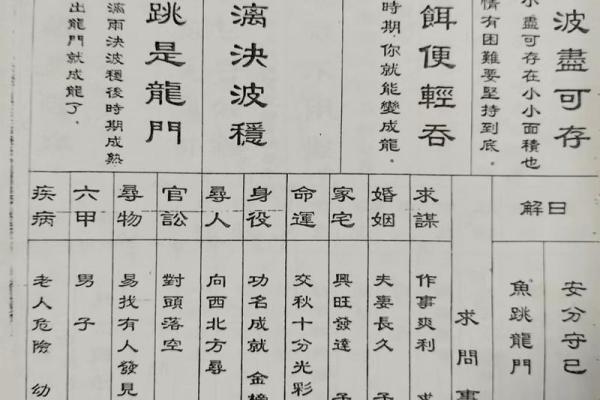 波盡可存
小盡可存在小小面積也
情有困難要堅持到底。
餌便輕吞
時期，你就能變成龍。
漓決波穩
跳是龍門
漓雨決波穩後時期成熟
出龍門就成龍了。
日解
安分守己
魚跳龍門
求問事
求謀
作事爽利 求
婚姻
夫妻長久 子
家宅
興旺發達 子
命運
交秋十分光彩
身役
功名成就 金榜
尋人
向西北方尋
官訟
對頭落空
尋物
易找有人發見
六甲
男子
疾病
老人危險 幼